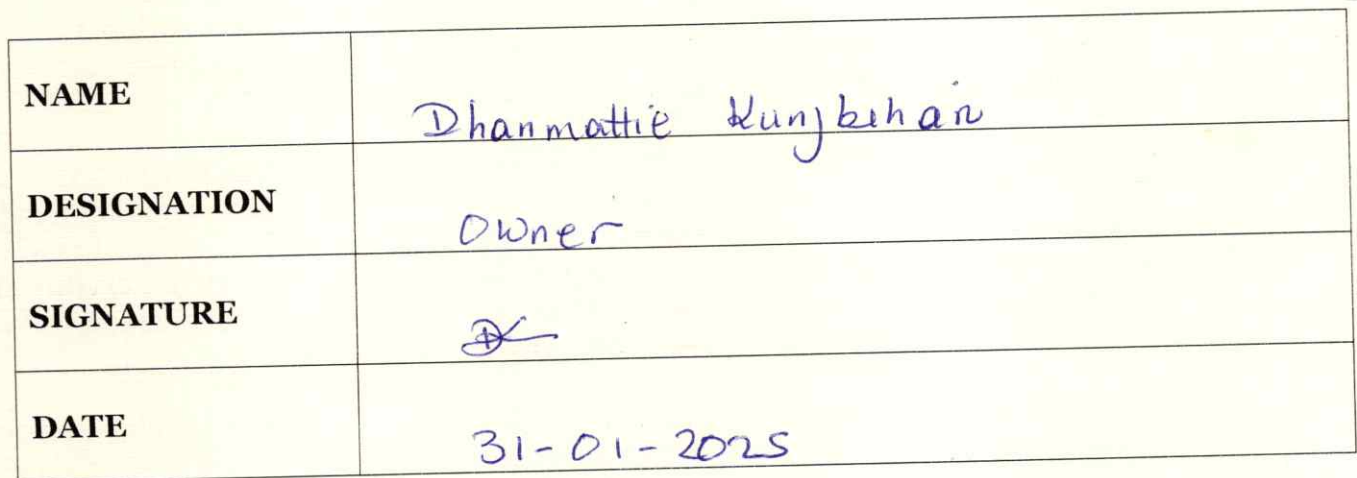 NAME Dhanmattie Kunjbehari
DESIGNATION Owner
SIGNATURE
DATE 31-01-2025